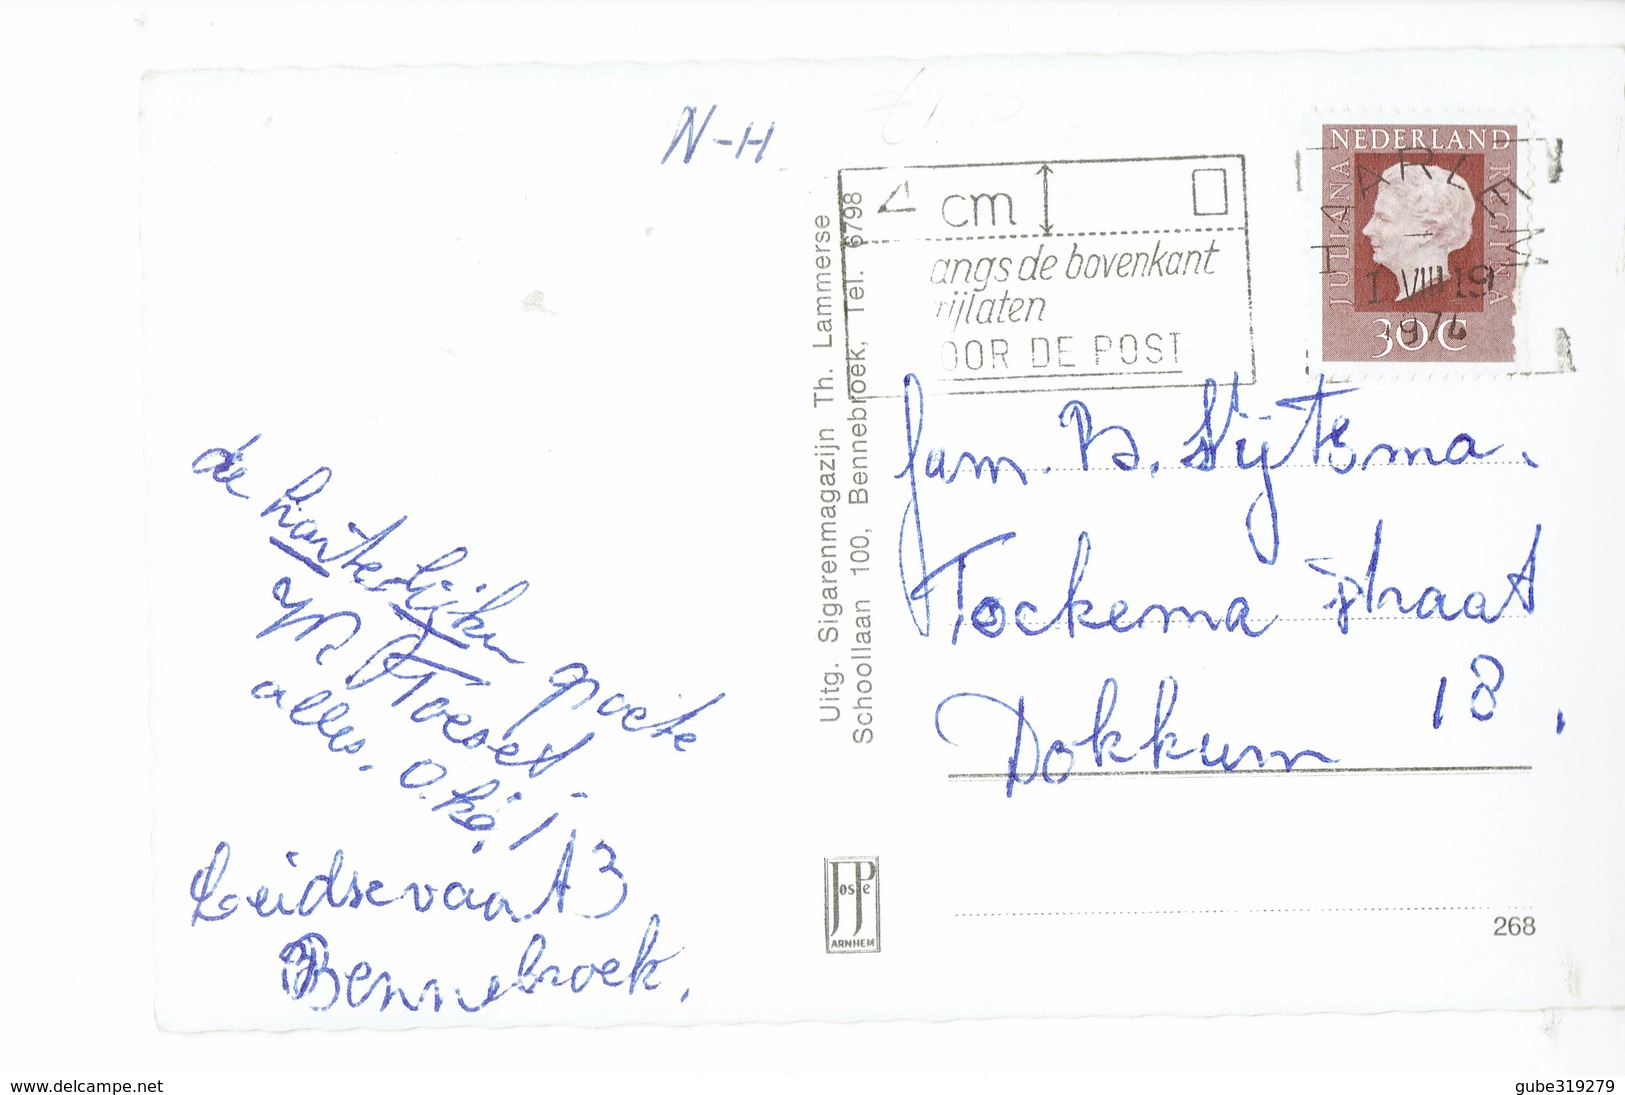 N-H
£1.50
4 cm
angs de bovenkant
rijlaten
OOR DE POST
NEDERLAND
JULIANA REGINA
30C
HAARLEM
1 VIII 19
1974
Uitg. Sigarenmagazijn Th. Lammerse
Schoollaan 100, Bennebroek, Tel. 6798
de hartelijke groete
alles. o.ké!
Leidsevaart 3
Bennebroek.
fam. B. Sijtsma.
Tockema straat
18.
Dokkum
JosPe
ARNHEM
268
www.delcampe.net
gube319279